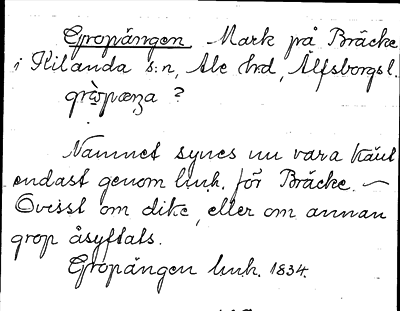 Gropängen. Mark på Bräcke
i Kilanda s:n, Ale hrd, Älfsborgs l.
Namnet synes nu vara känt
endast genom lmh. för Bräcke. —
Ovisst om dike, eller om annan
grop åsyftats.
Gropängen lmh. 1834.